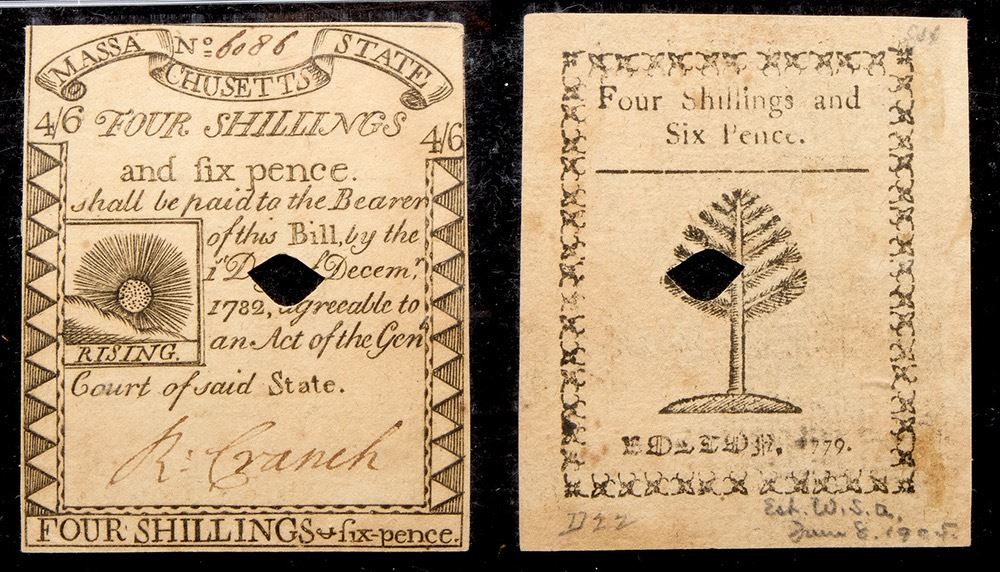 MASSA CHUSETTS STATE
Nº 6086
4/6 FOUR SHILLINGS 4/6
and ſix pence.
shall be paid to the Bearer
of this Bill, by the
Decem,r
1782, agreeable to
an Act of the Genl
RISING.
Court of said State.
R: Cranch
FOUR SHILLINGS & ſix-pence.
Four Shillings and
Six Pence.
BOSTON, 1779.
D22
Est. W.S.a.
June 8.